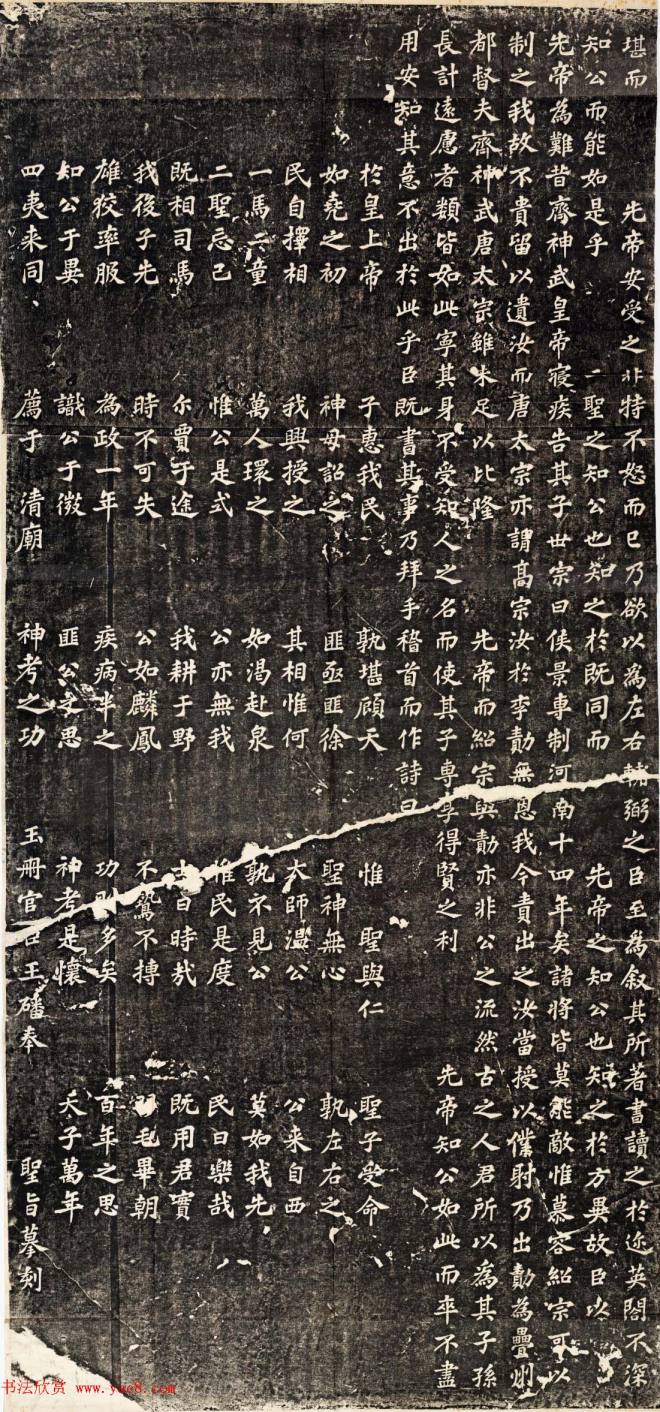 堪而　先帝安受之非特不怒而已乃欲以為左右輔弼之臣至為叙其所著書讀之於迩英閣不深
知公而能如是乎　二聖之知公也知之於既同而　先帝之知公也知之於方異故臣以
先帝為難昔齊神武皇帝寢疾告其子世宗曰侯景專制河南十四年矣諸將皆莫能敵惟慕容紹宗可以
制之我故不貴留以遺汝而唐太宗亦謂高宗汝於李勣無恩我今責出之汝當授以僕射乃出勣為疊州
都督夫齊神武唐太宗雖未足以比隆　先帝而紹宗與勣亦非公之流然古之人君所以為其子孫
長計遠慮者類皆如此寧其身不受知人之名而使其子專享得賢之利　先帝知公如此而卒不盡
用安知其意不出於此乎臣既書其事乃拜手稽首而作詩曰
於皇上帝　子惠我民　孰堪顧天　惟　聖與仁　聖子受命
如堯之初　神母詔之　匪亟匪徐　聖神無心　孰左右之
民自擇相　我興授之　其相惟何　太師溫公　公来自西
一馬二童　萬人環之　如渴赴泉　孰不見公　莫如我先
二聖忘己　惟公是式　公亦無我　惟民是度　民曰樂哉
既相司馬　尔賈于途　我耕于野　士曰時哉　既用君實
我後子先　時不可失　公如麟鳳　不鷙不搏　羽毛畢朝
雄狡率服　為政一年　疾病半之　功則多矣　百年之思
知公于異　識公于微　匪公之思　神考是懷　天子萬年
四夷来同　薦于　清廟　神考之功　玉冊官臣王磻奉　聖旨摹刻
书法欣赏 www.yac8.com